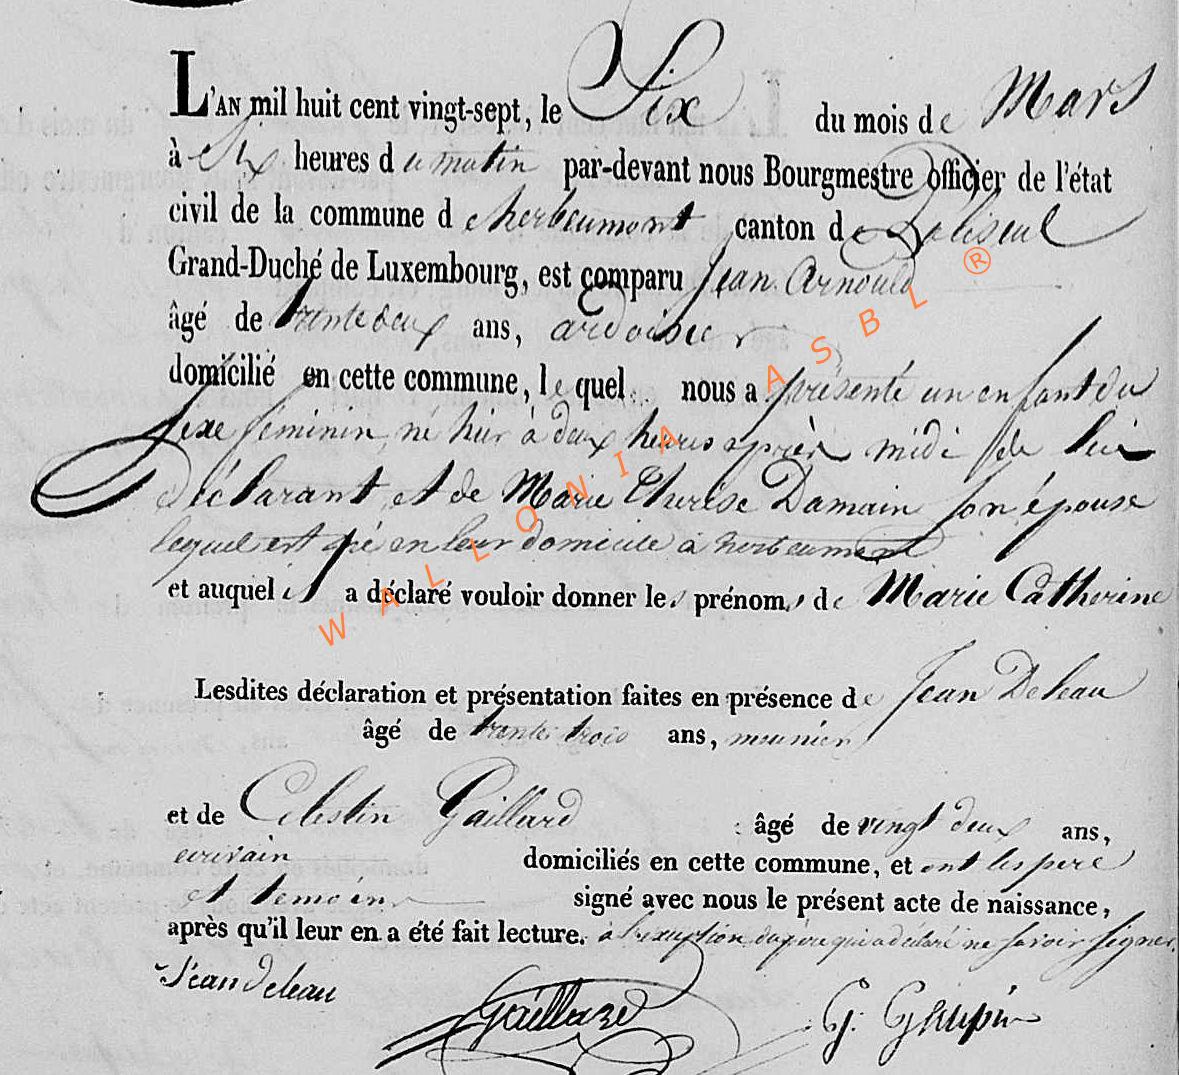 L'AN mil huit cent vingt-sept, le Six du mois de Mars
à Six heures du matin par-devant nous Bourgmestre officier de l'état
civil de la commune d'herbeumont canton de Paliseul
Grand-Duché de Luxembourg, est comparu Jean Arnould
âgé de trente deux ans, ardoisier
domicilié en cette commune, lequel nous a présenté un enfant du
sexe féminin, né hier à deux heures après midi de lui
Déclarant et de Marie Thérèse Damain son épouse
lequel est né en leur domicile à herbeumont
et auquel il a déclaré vouloir donner les prénoms de Marie Catherine
Lesdites déclaration et présentation faites en présence de Jean Deleau
âgé de trente trois ans, meunier
et de Célestin Gaillard âgé de vingt deux ans,
écrivain domiciliés en cette commune, et ont les père
et temoins signé avec nous le présent acte de naissance,
après qu'il leur en a été fait lecture. à l'exception du père qui a déclaré ne savoir signer.
Jean deleau Gaillard G.
WALLONIA ASBL ®